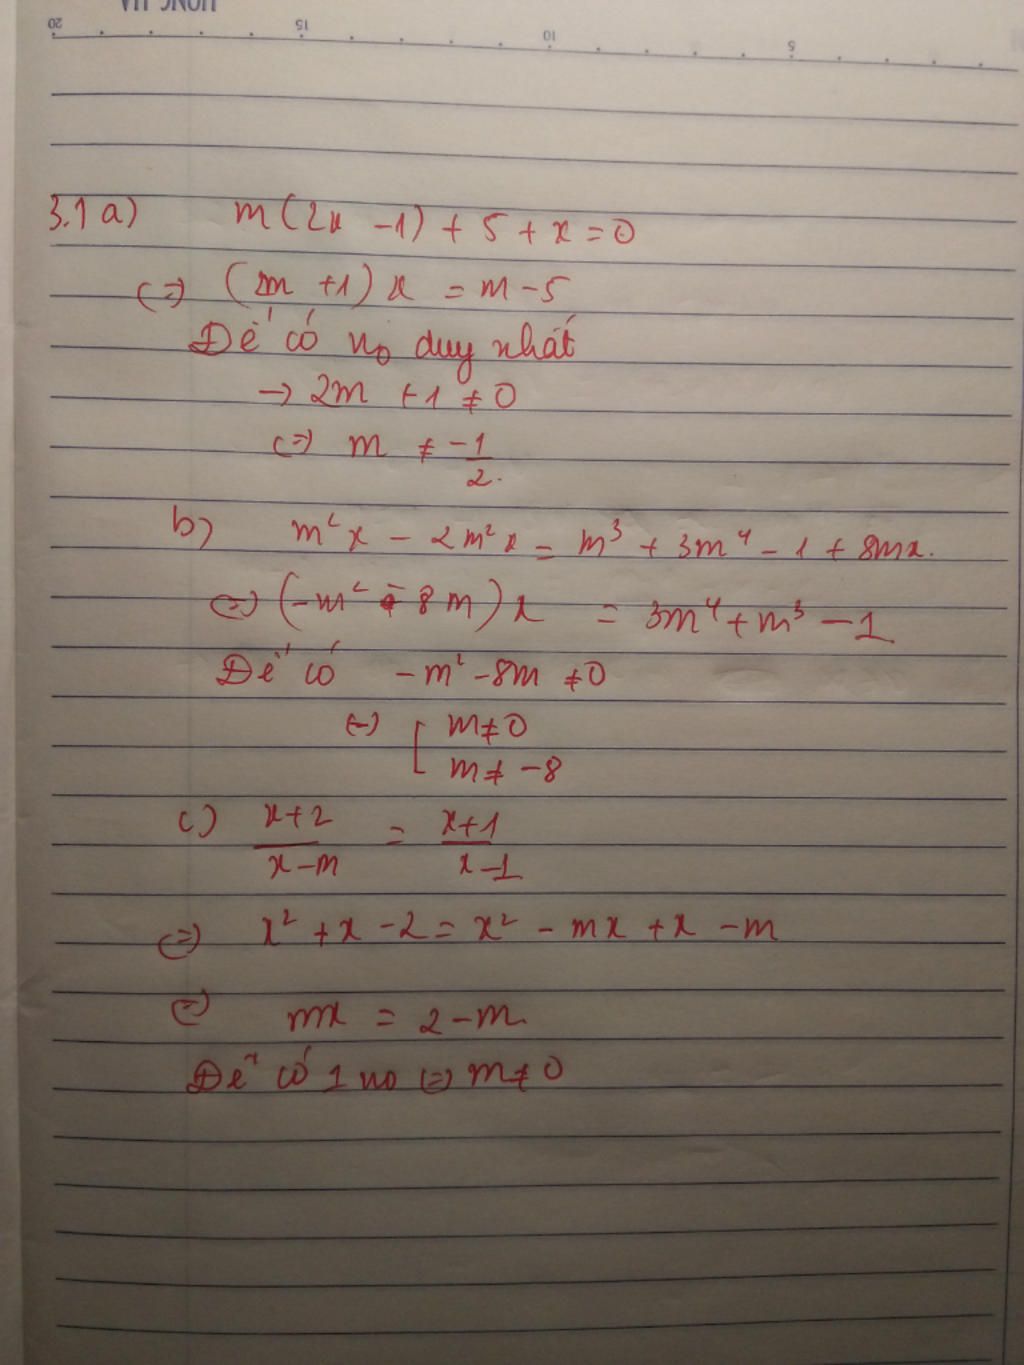 HONG HA
20 15 10 5
3.1 a) m(2x -1) + 5 + x = 0
(=) (2m +1) x = m - 5
Để có no duy nhất
→ 2m + 1 ≠ 0
(=) m ≠ -1/2.
b) m²x - 2m²x = m³ + 3m⁴ - 1 + 8mx.
(=) (-m² - 8m) x = 3m⁴ + m³ - 1
Để có -m² - 8m ≠ 0
(=) [ m ≠ 0
m ≠ -8
c) x+2/x-m = x+1/x-1
(=) x² + x - 2 = x² - mx + x - m
(=) mx = 2 - m
Để có 1 no (=) m ≠ 0